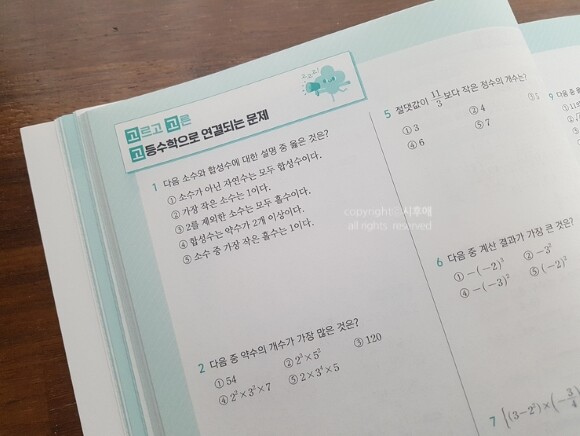 고르고 고른
고등수학으로 연결되는 문제
1 다음 소수와 합성수에 대한 설명 중 옳은 것은?
① 소수가 아닌 자연수는 모두 합성수이다.
② 가장 작은 소수는 1이다.
③ 2를 제외한 소수는 모두 홀수이다.
④ 합성수는 약수가 2개 이상이다.
⑤ 소수 중 가장 작은 홀수는 1이다.
2 다음 중 약수의 개수가 가장 많은 것은?
① 54 ③ 120
④ 2²×3²×7
5 절댓값이 11/3 보다 작은 정수의 개수는?
① 3 ② 4
④ 6 ⑤ 7
6 다음 중 계산 결과가 가장 큰 것은?
② -3²
④ -(-3)²
7
9 다음 중
copyrightⓒ시후매
all rights reserved